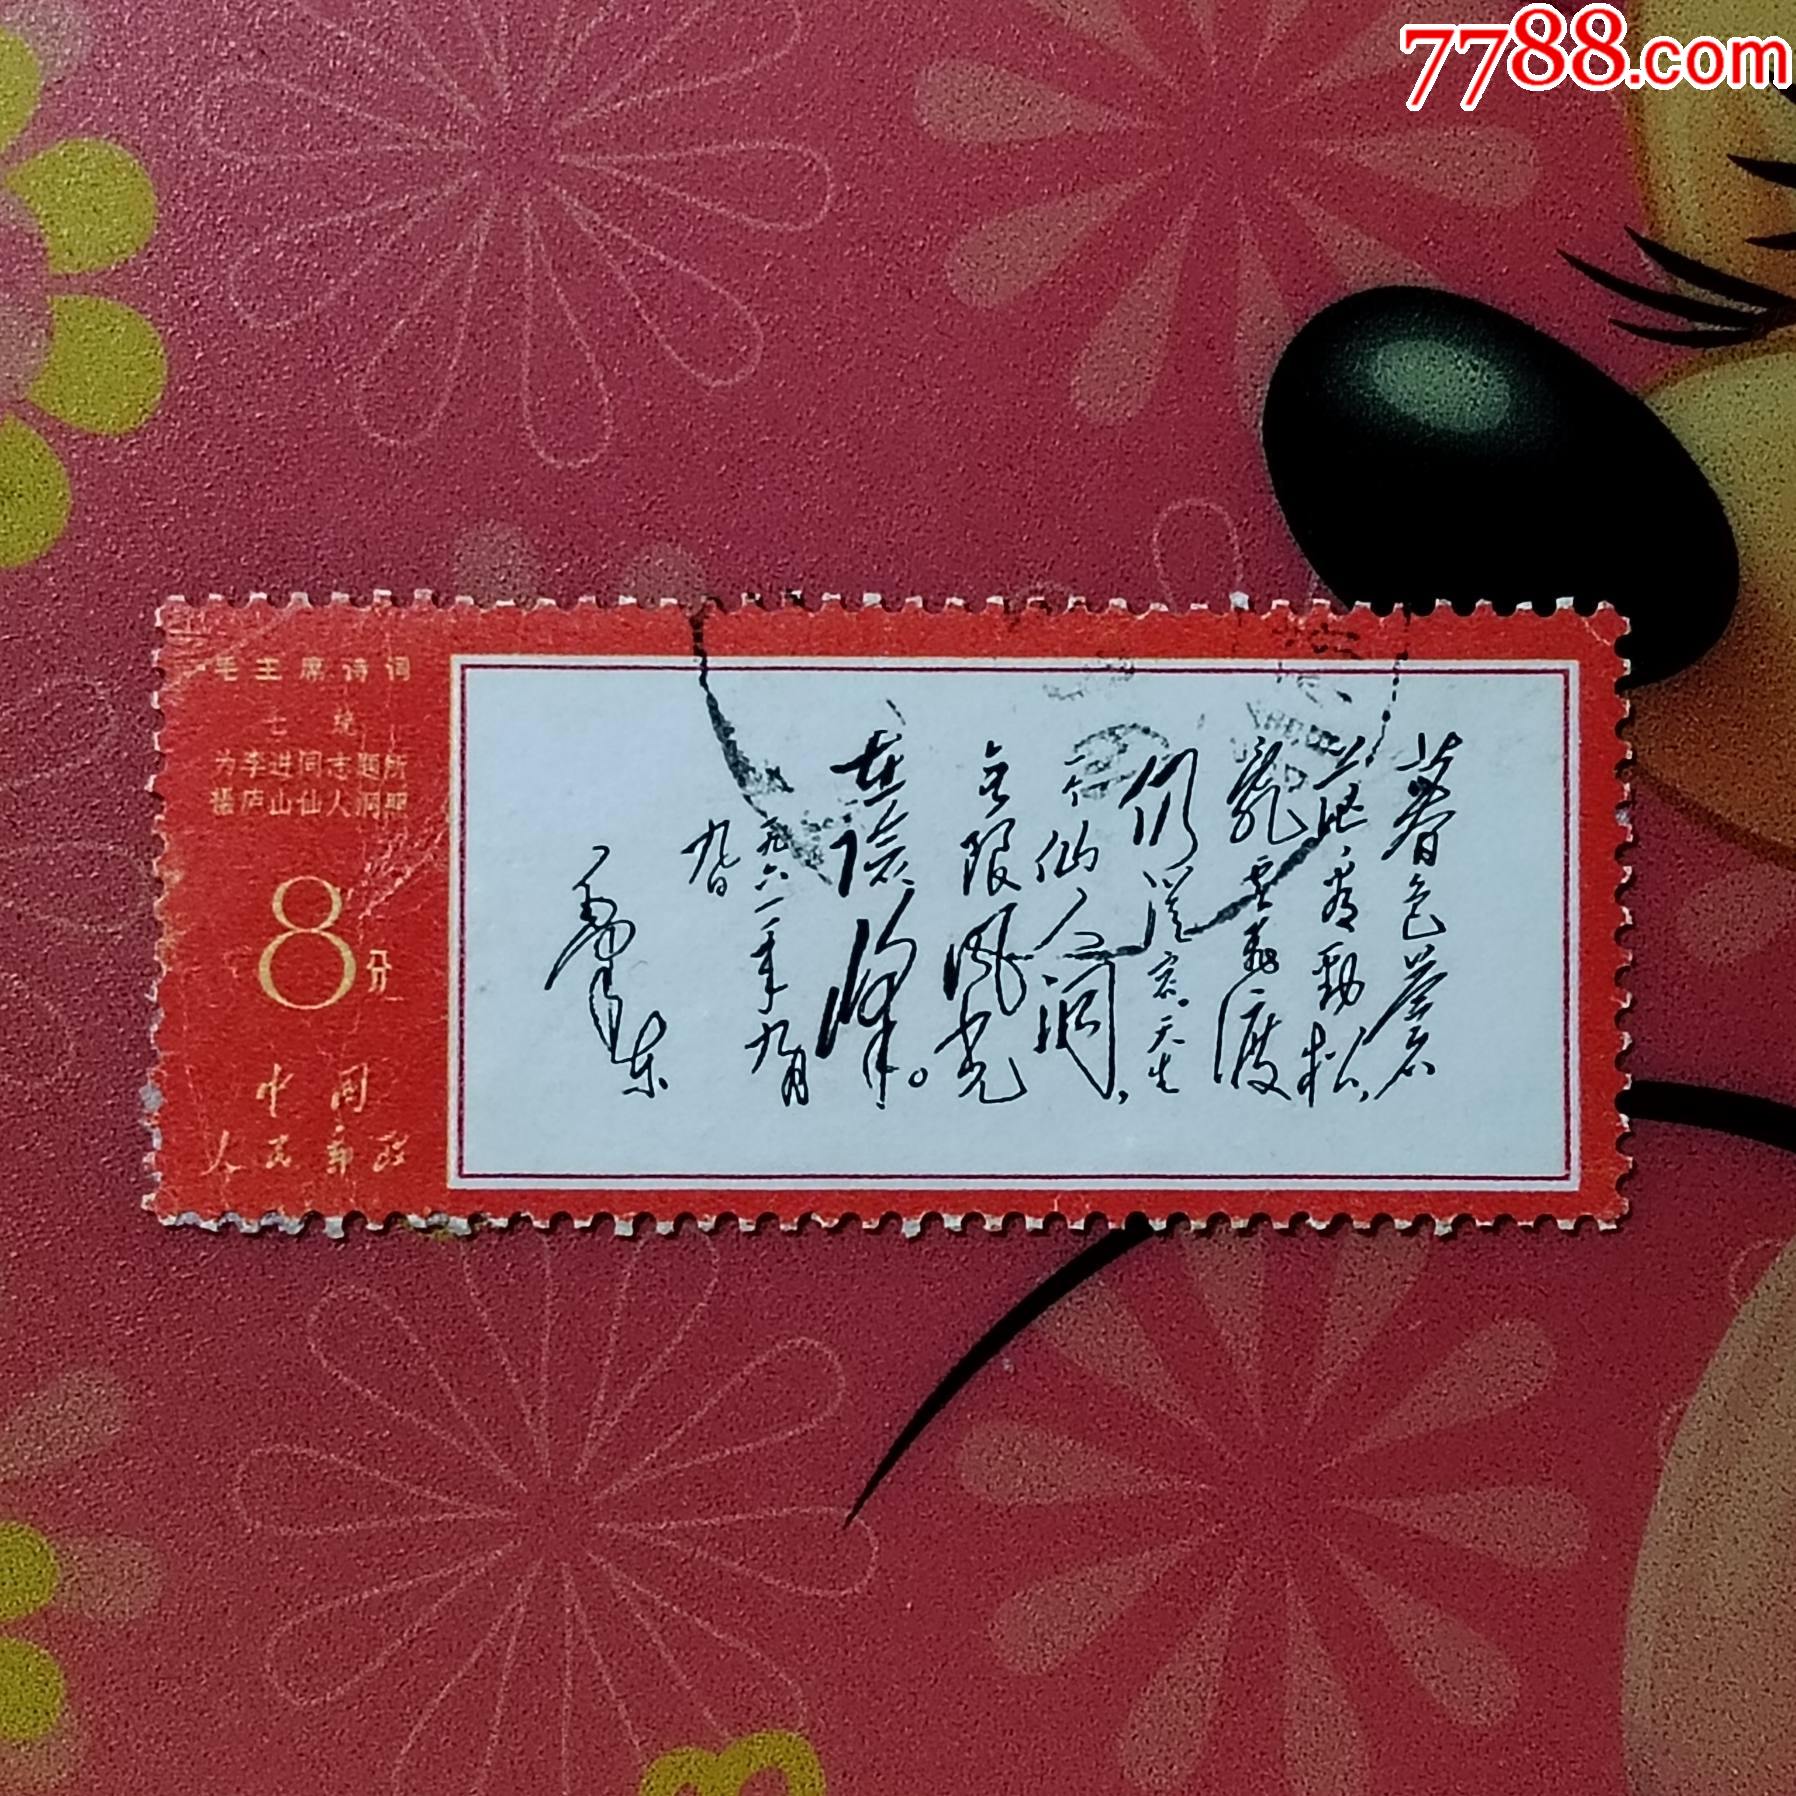 7788.com
毛主席诗词
七绝
为李进同志题所
摄庐山仙人洞照
8分
中国
人民邮政
暮色苍
茫看劲松,
乱云飞渡
仍从容。天生
一个仙人洞,
无限风光
在险峰。
一九六一年九月
九日
毛泽东